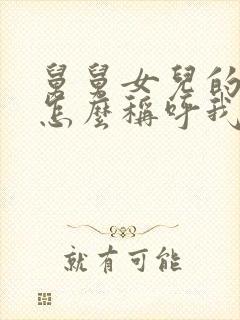 舅舅女兒的
怎麼稱呼我
就有可能